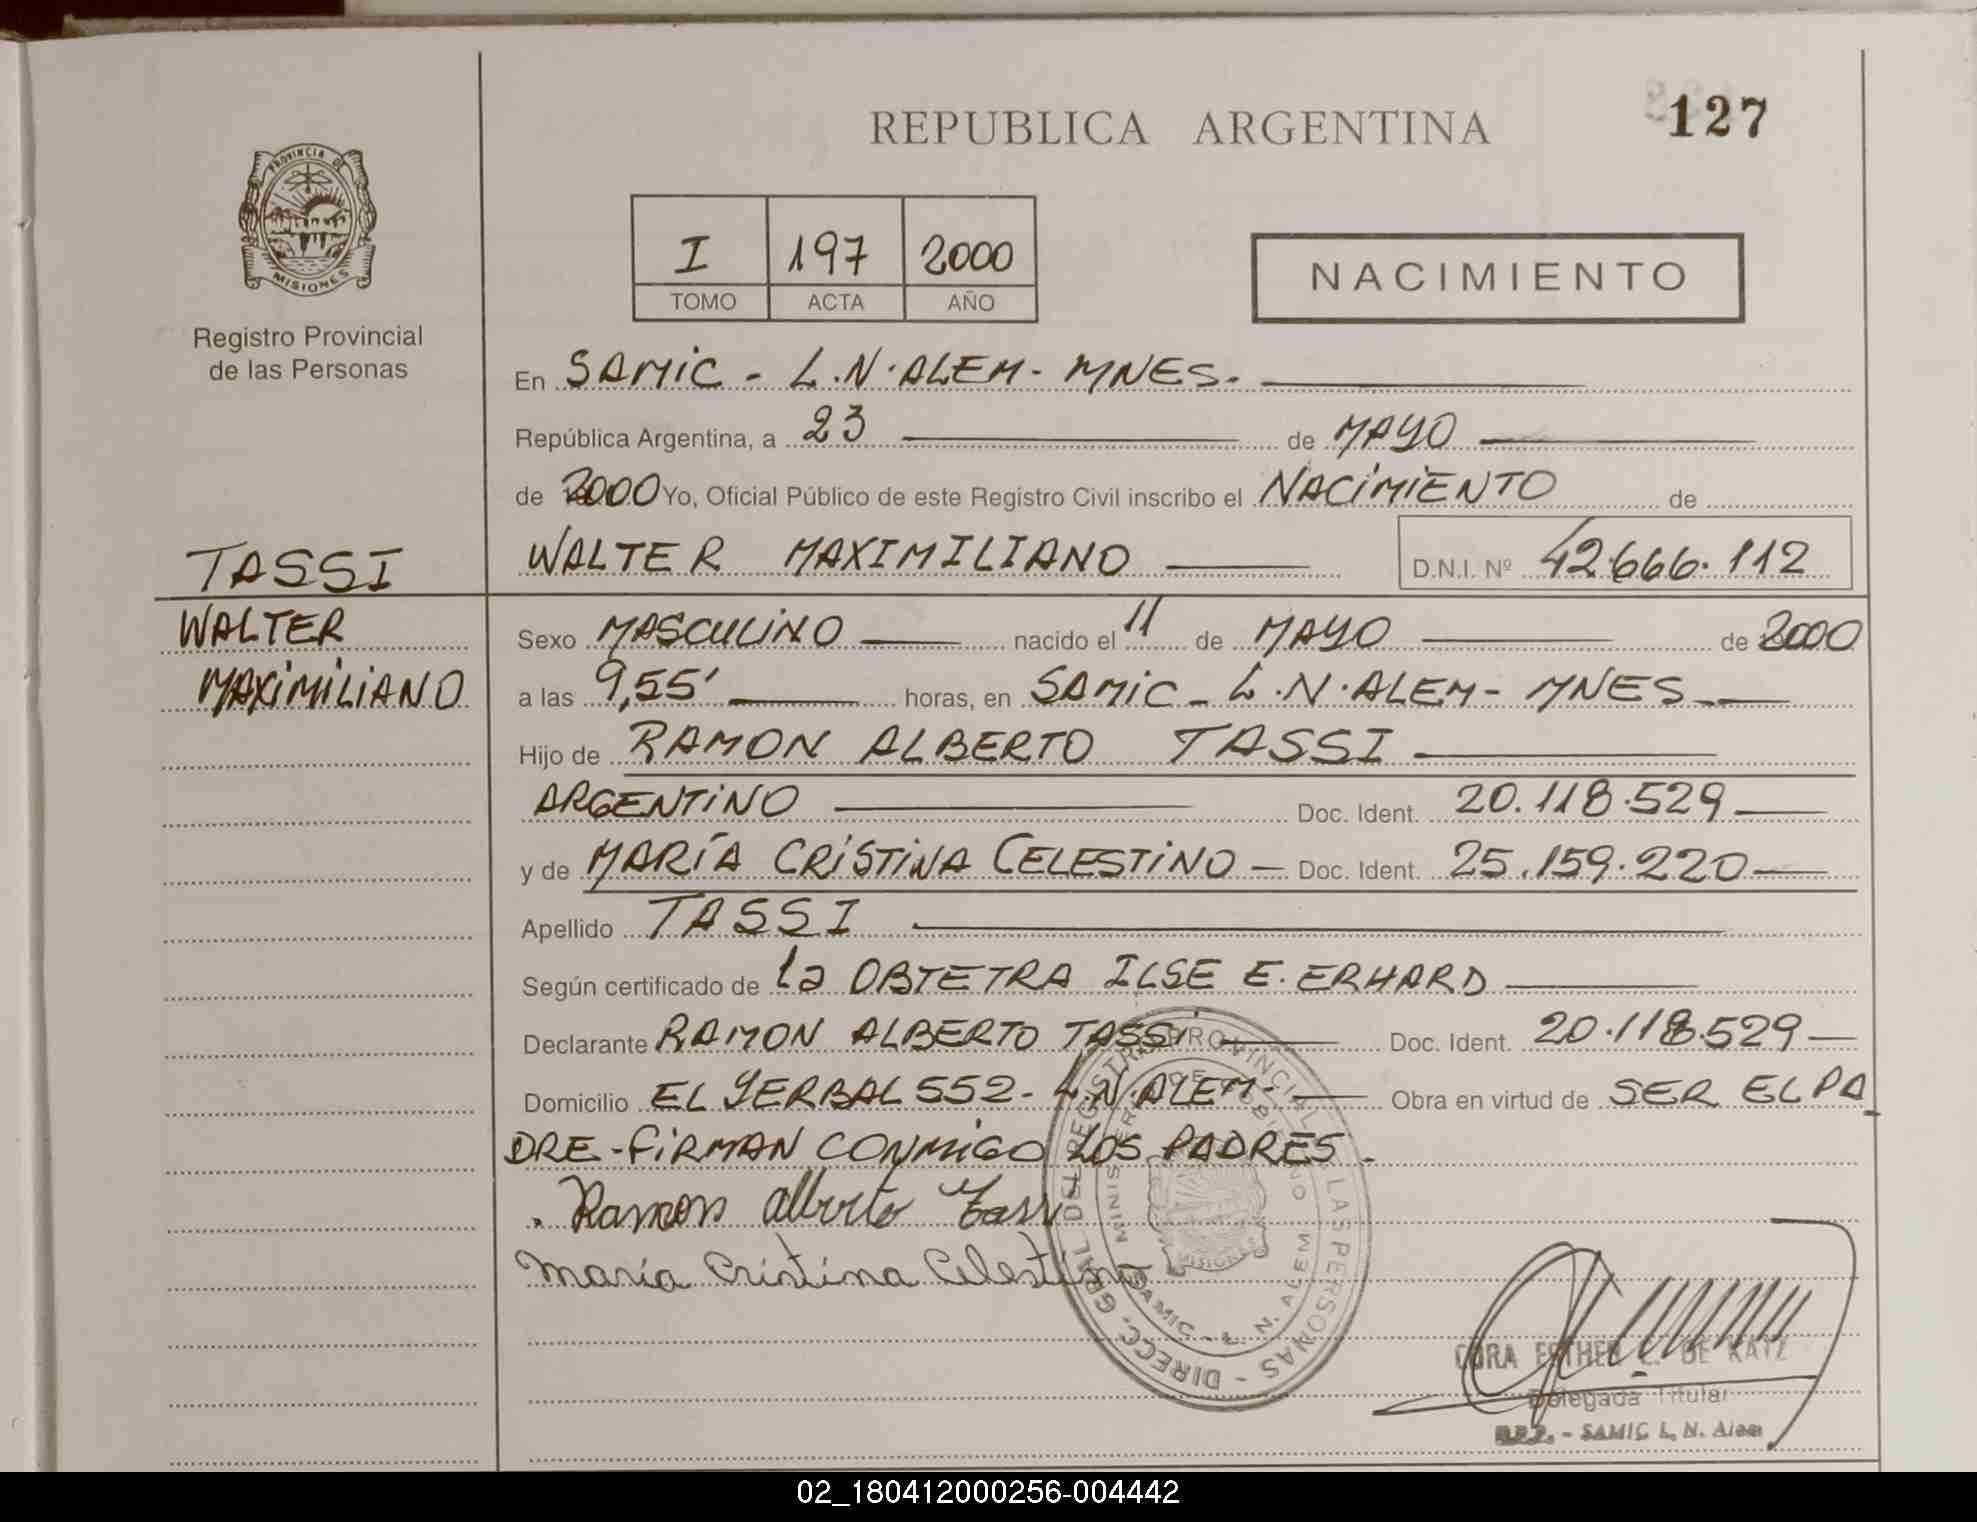 REPUBLICA ARGENTINA
127
PROVINCIA DE
MISIONES
Registro Provincial
de las Personas
I 197 2000
TOMO ACTA AÑO
NACIMIENTO
En SAMIC - L.N. ALEM - MNES.
República Argentina, a 23 de MAYO
de 2000 Yo, Oficial Público de este Registro Civil inscribo el NACIMIENTO de
TASSI
WALTER MAXIMILIANO D.N.I. Nº 42.666.112
WALTER
MAXIMILIANO
Sexo MASCULINO nacido el 11 de MAYO de 2000
a las 9,55' horas, en SAMIC - L.N. ALEM - MNES -
Hijo de RAMON ALBERTO TASSI
ARGENTINO Doc. Ident. 20.118.529
y de MARÍA CRISTINA CELESTINO - Doc. Ident. 25.159.220
Apellido TASSI
Según certificado de la OBTETRA ILSE E. ERHARD
Declarante RAMON ALBERTO TASSI Doc. Ident. 20.118.529
Domicilio EL YERBAL 552 - L.N. ALEM - Obra en virtud de SER EL PA
DRE - FIRMAN CONMIGO LOS PADRES.
Ramon Alberto Tassi
María Cristina Celestino
DIRECC. GRAL DEL REGISTRO PROVINCIAL DE LAS PERSONAS -
MINISTERIO DE GOBIERNO
MISIONES
SAMIC - L. N. ALEM
CORA ESTHER C. DE KATZ
Delegada Titular
R.P.P. - SAMIC L. N. Alem
02_180412000256-004442